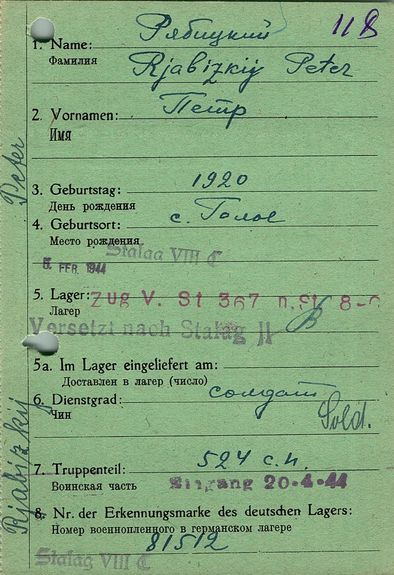 Рябицкий 11 D
1. Name: Rjabizkij Peter
Фамилия
2. Vornamen: Петр
Имя
3. Geburtstag: 1920
День рождения
4. Geburtsort: с. Голое
Место рождения
Stalag VIII C
5. FEB. 1944
5. Lager: Zug V. St 367 n. St. 8-C
Лагер
Versetzt nach Stalag II B
5a. Im Lager eingeliefert am:
Доставлен в лагер (число)
6. Dienstgrad: солдат
Чин Sold.
7. Truppenteil: 524 с.п.
Воинская часть Eingang 20-4-44
8. Nr. der Erkennungsmarke des deutschen Lagers:
Номер военнопленного в германском лагере
81512
Stalag VIII C
Rjabizkij Peter